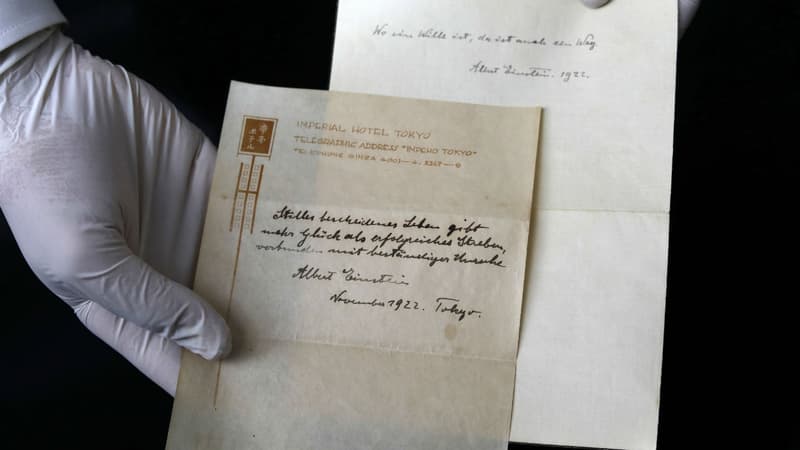 Wo ein Wille ist, da ist auch ein Weg.
Albert Einstein. 1922.
帝国
ホテル
IMPERIAL HOTEL TOKYO
TELEGRAPHIC ADDRESS "IMPEHO TOKYO"
TELEPHONE GINZA
Stilles bescheidenes Leben gibt
mehr Glück als erfolgreiches Streben,
verbunden mit beständiger Unruhe
Albert Einstein
November 1922. Tokyo.